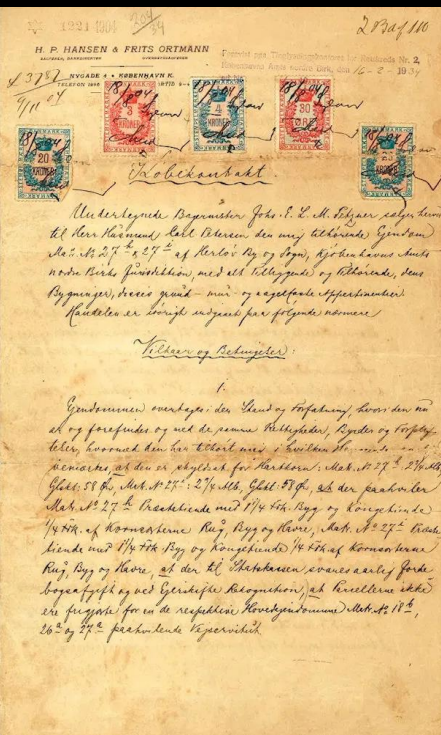 1321 1904
204
34
2 Baf 110
H. P. HANSEN & FRITS ORTMANN
NYGADE 4 • KØBENHAVN K.
TELEFON
16-2-1934
18/5 04
3
KRONER
4
KRONER
30
ØRE
20
KRONER
KRONER
Købekontrakt
Undertegnede Bagermester Johs. E. L. M. Fetzner sælger herved
til Herr Husmand Carl Petersen den mig tilhørende Ejendom
Matr. No 27 b & 27 c af Herløv By og Sogn, Kjøbenhavns Amts
nordre Birks Jurisdiktion, med alt Tilliggende og Tilhørende, dens
Bygninger, disses grund- mur- og nagelfaste Appertinentier
Handelen er iøvrigt indgaaet paa følgende nærmere
Vilkaar og Betingelser:
1.
Ejendommen overtages i den Stand og Forfatning, hvori den nu
er og forefindes og med de samme Rettigheder, Byrder og Forplig-
telser, hvormed den har tilhørt mig i hvilken
bemærkes, at den er skyldsat for Hartkorn: Matr. No 27 b 2 3/4 Alb,
Glskt: 58 Øre, Matr. No 27 c: 2 3/4 Alb, Glskt: 58 Øre, at der paahviler
Matr. No 27 b Præstetiende med 1 1/4 Fdk. Byg og Kongetiende
1/4 Fdk. af Kornsorterne Rug, Byg og Havre, Matr. No 27 c Præste-
tiende med 1 1/4 Fdk. Byg og Kongetiende 1/4 Fdk af Kornsorterne
Rug, Byg og Havre, at der til Statskassen svares aarlig Jorde-
bogsafgift og ved Ejerskifte Rekognition, at Parcellerne ikke
ere frigjorte for en de respektive Hovedejendomme Matr. No 18 b,
26 a og 27 a paahvilende Vejservitut